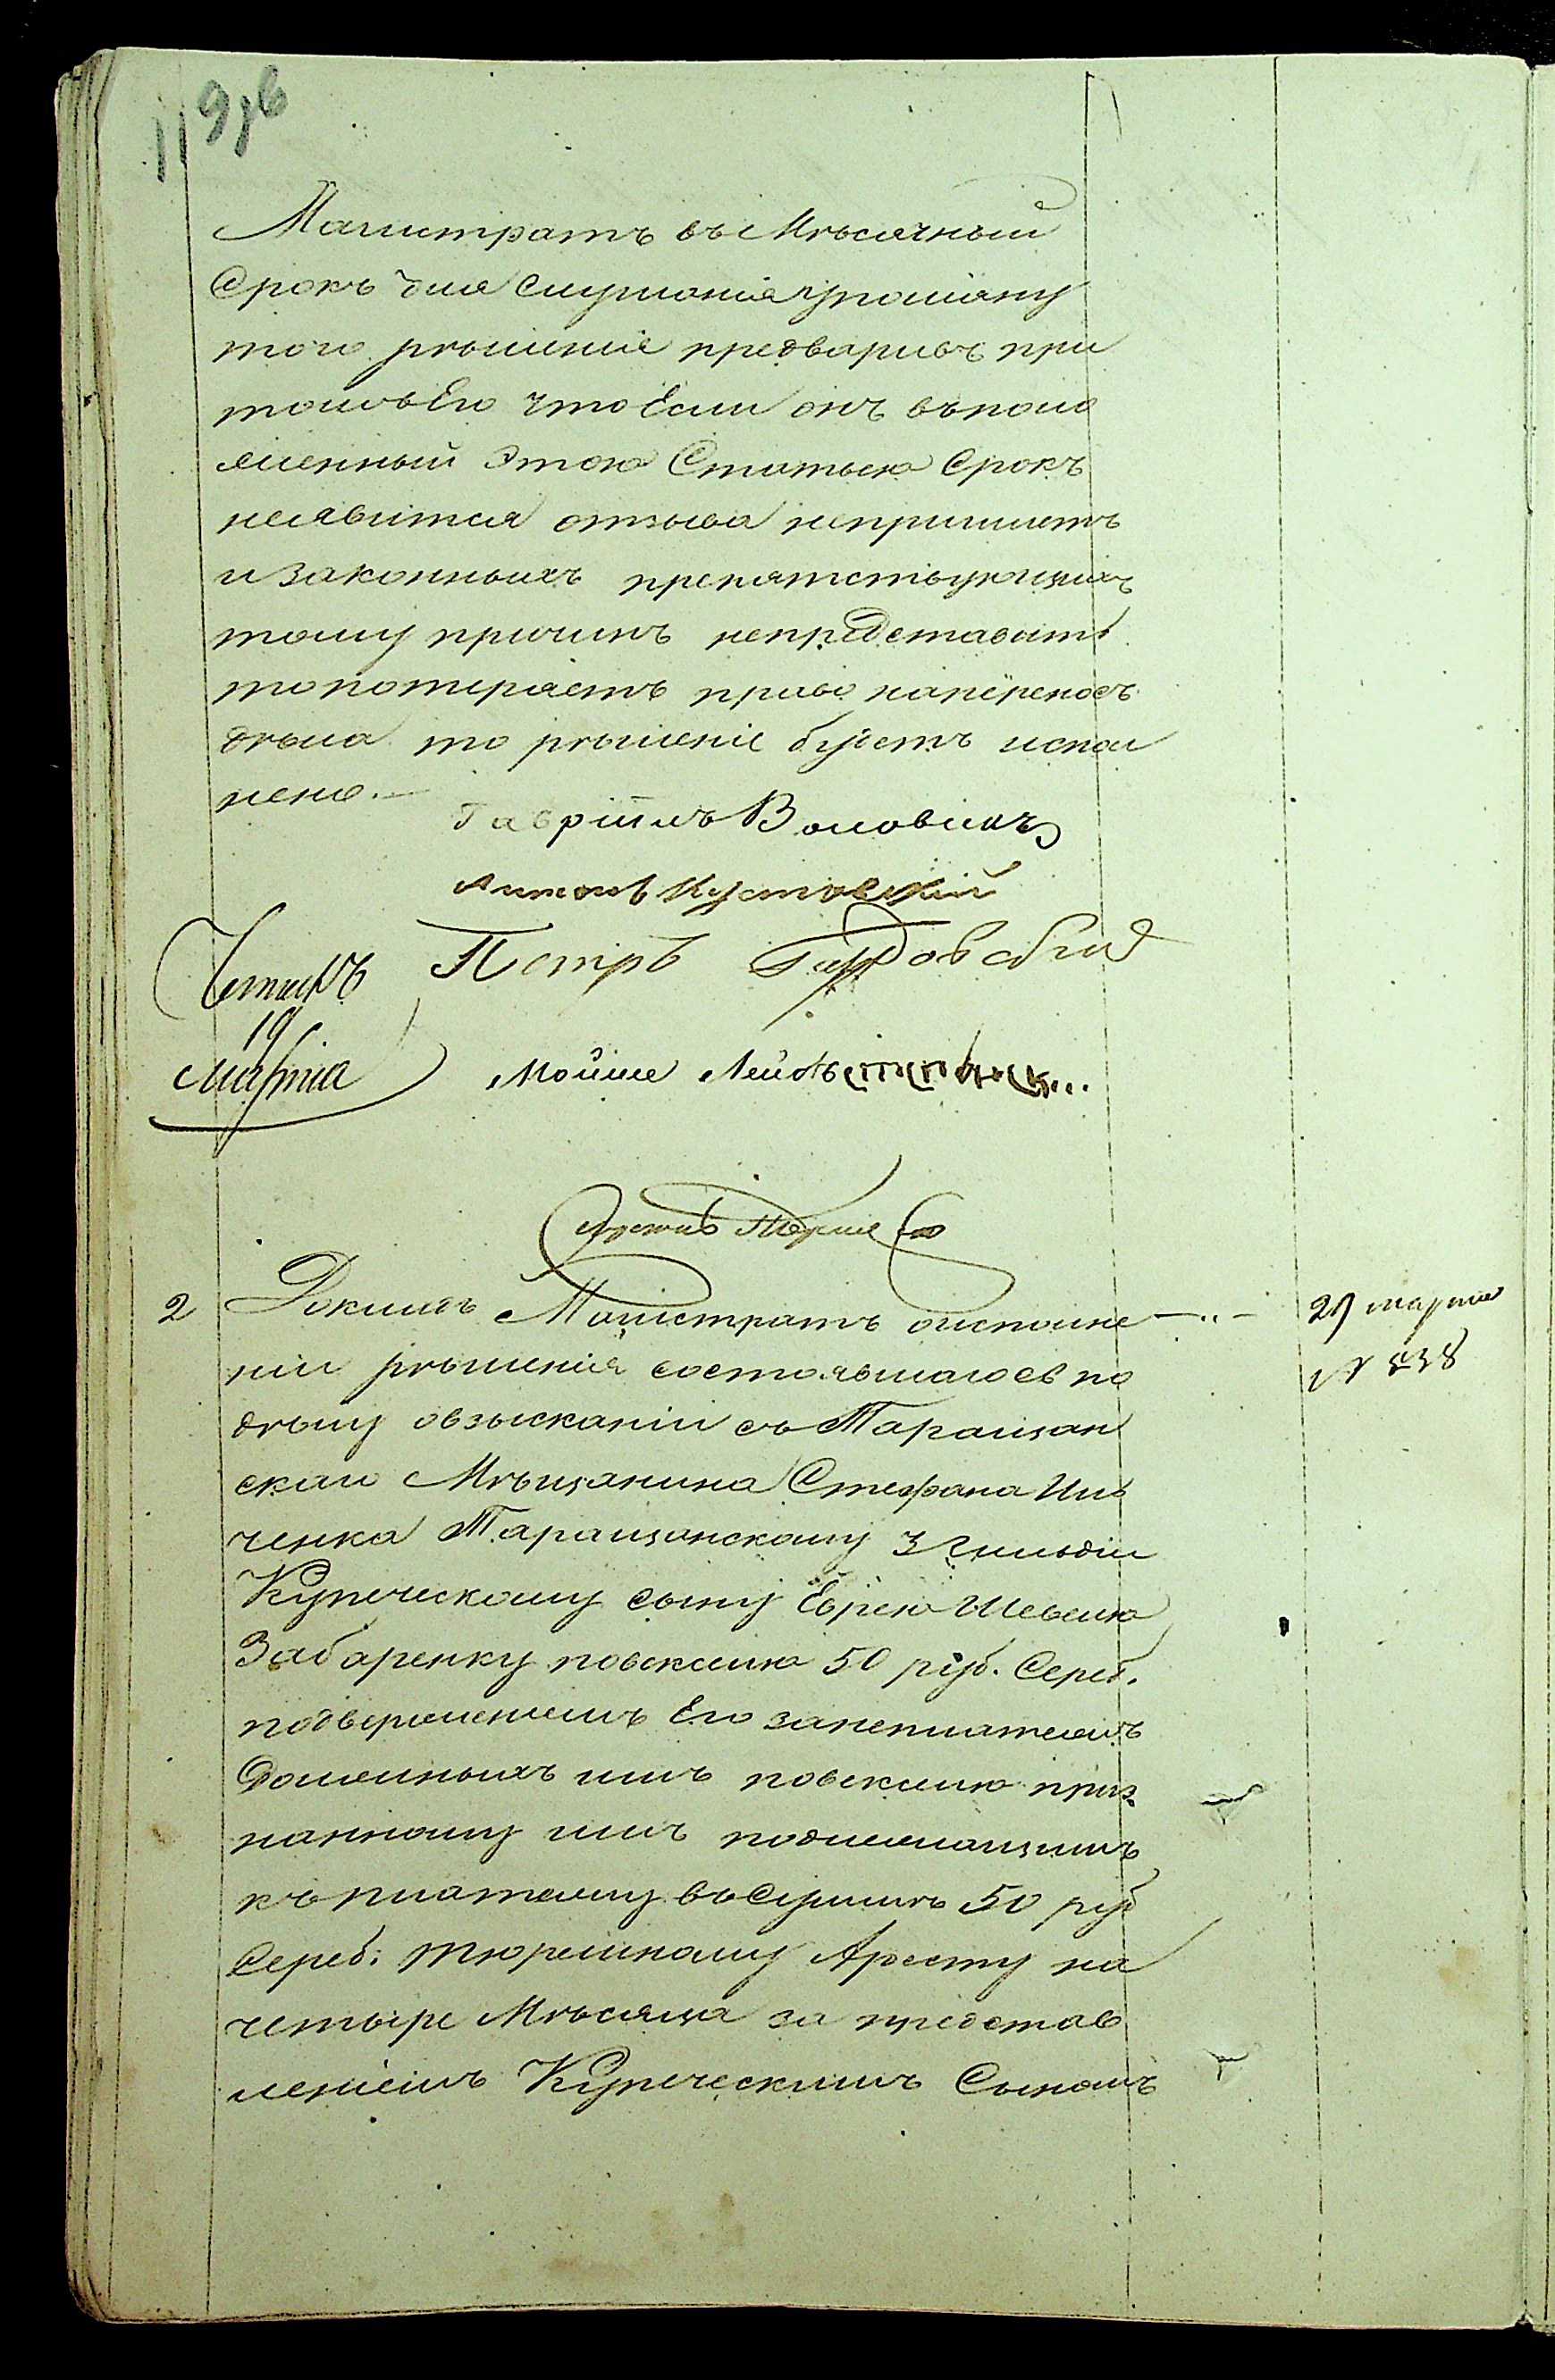 119 об
Магистратъ въ Мѣсячный
Срокъ для Слушанія упомяну
того рѣшеніе предваривъ при
томъ Его что Если онъ въ поло
женный Этою Статьею Срокъ
неявится отзыва непришлетъ
и Законныхъ препятствующихъ
тому причинъ непредставитъ
то потеряетъ право на переносъ
дѣла то рѣшеніе будетъ испол
нено.—
Гавріилъ Воловикъ
Антонъ Кустовскій
Петръ
Читалъ
19
Марта
Мойше Лейбъ
2 Докладъ Магистратъ о исполне
ніи рѣшенія состоявшагось по
дѣлу овзысканіи съ Таращан
скаго Мѣщанина Стефана Иль
ченка Таращанскому 3 гильдіи
Купеческому сыну Еврею Шевелю
Забаренку повекселю 50 руб. Сереб.
подверженіемъ Его занеплатежъ
Должныхъ имъ повекселю приз-
нанному имъ подлежащимъ
къ платежу въ Суммѣ 50 руб
Сереб: тюремному Аресту на
четыре Мѣсяца за представ
леніемъ Купеческимъ Сыномъ
27 марта
№ 838